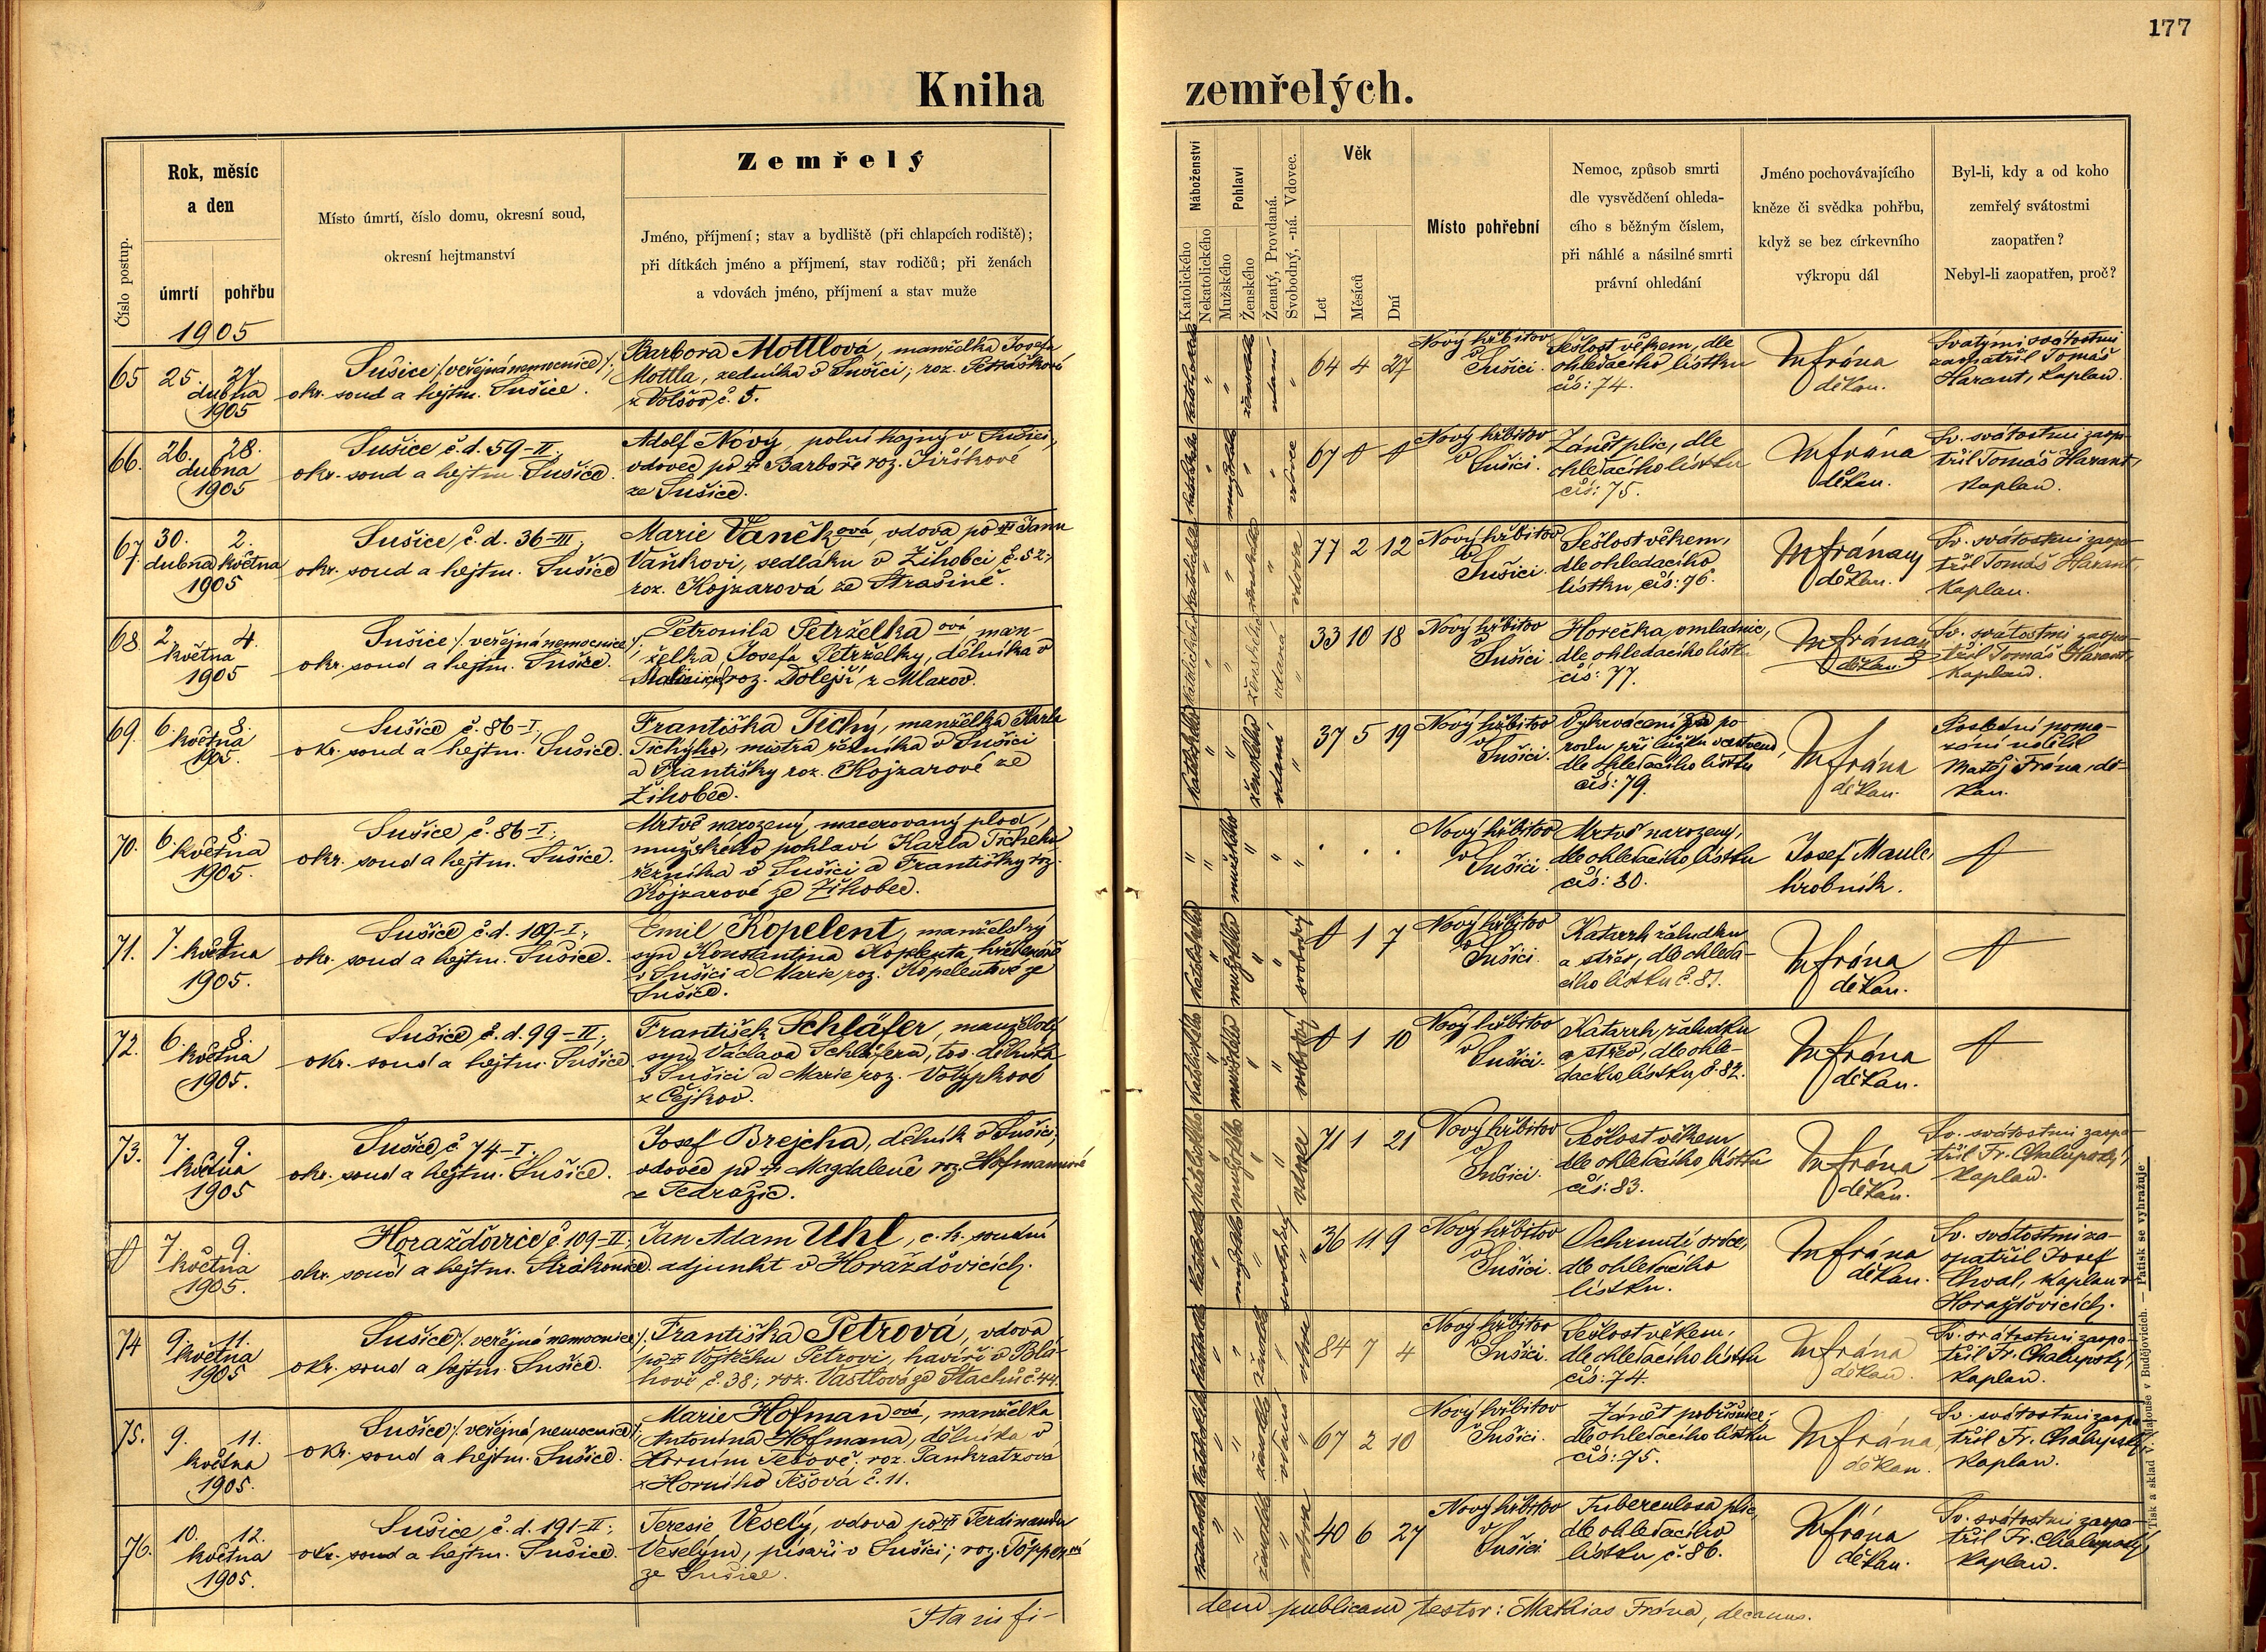 177
Kniha zemřelých.
Číslo postup.
Rok, měsíc
a den
úmrtí pohřbu
1905
Místo úmrtí, číslo domu, okresní soud,
okresní hejtmanství
Zemřelý
Jméno, příjmení; stav a bydliště (při chlapcích rodiště);
při dítkách jméno a příjmení, stav rodičů; při ženách
a vdovách jméno, příjmení a stav muže
Náboženství
Katolického
Nekatolického
Pohlaví
Mužského
Ženského
Ženatý, Provdaná.
Svobodný, -ná. Vdovec.
Věk
Let
Měsíců
Dní
Místo pohřební
Nemoc, způsob smrti
dle vysvědčení ohleda-
cího s běžným číslem,
při náhlé a násilné smrti
právní ohledání
Jméno pochovávajícího
kněze či svědka pohřbu,
když se bez církevního
výkropu dál
Byl-li, kdy a od koho
zemřelý svátostmi
zaopatřen?
Nebyl-li zaopatřen, proč?
65 25. 27.
dubna
1905
Sušice /: veřejná nemocnice :/;
okr. soud a hejtm. Sušice.
Barbora Mottlová, manželka Josefa
Mottla, zedníka v Sušici; roz. Petrášková
z Volšov č. 5.
katolického
ženského
vdaná
64 4 27
Nový hřbitov
v Sušici.
Sešlost věkem, dle
ohledacího lístku
čís: 74.
M Frána
děkan.
Svatými svátostmi
zaopatřil Tomáš
Harant, kaplan.
66. 26. 28.
dubna
1905
Sušice č. d. 59-II.;
okr. soud a hejtm. Sušice.
Adolf Nový, polní hajný v Sušici,
vdovec po † Barboře roz. Jiříkové
ze Sušice.
katolického
mužského
vdovec
67 0 0
Nový hřbitov
v Sušici.
Zánět plic, dle
ohledacího lístku
čís: 75.
M Frána
děkan.
Sv. svátostmi zaopa-
třil Tomáš Harant,
kaplan.
67. 30. 2.
dubna května
1905
Sušice, č. d. 36-III;
okr. soud a hejtm. Sušice
Marie Vaněková, vdova po † Janu
Vaňkovi, sedláku v Žihobci č. 52;
roz. Kojzarová ze Strašině.
katolického
ženského
vdova
77 2 12
Nový hřbitov
v Sušici.
Sešlost věkem,
dle ohledacího
lístku čís: 76.
M Frána
děkan.
Sv. svátostmi zaopa-
třil Tomáš Harant,
kaplan.
68. 2. 4.
května
1905
Sušice /: veřejná nemocnice :/;
okr. soud a hejtm. Sušice.
Petronila Petrželka ová, man-
želka Josefa Petrželky, dělníka v
roz. Dolejší z Mlazov.
katolického
ženského
vdaná
33 10 18
Nový hřbitov
v Sušici.
Horečka omladnic,
dle ohledacího lístku
čís: 77.
M Frána
děkan
Sv. svátostmi zaopa-
třil Tomáš Harant,
kaplan.
69. 6. 8.
května
1905.
Sušice č. 86-I,
okr. soud a hejtm. Sušice.
Františka Tichý, manželka Karla
Tichýho, mistra řezníka v Sušici
a Františky roz. Kojzarové ze
Žihobce.
katolického
ženského
vdaná
37 5 19
Nový hřbitov
v Sušici.
Vykrvácení po po-
rodu při lůžku vcestném,
dle ohledacího lístku
čís: 79.
M Frána
děkan.
Poslední poma-
zání udělil
Matěj Frána, dě-
kan.
70. 6. 8.
května
1905.
Sušice č. 86-I;
okr. soud a hejtm. Sušice.
Mrtvě narozený macerovaný plod,
mužského pohlaví Karla Tichého
řezníka v Sušici a Františky roz.
Kojzarové ze Žihobce.
mužského
Nový hřbitov
v Sušici.
Mrtvě narozený,
dle ohledacího lístku
čís: 80.
Josef Maule,
hrobník.
0
71. 7. 9.
května
1905.
Sušice č. d. 109-I;
okr. soud a hejtm. Sušice.
Emil Kopelent, manželský
syn Konstantina Kopelenta, hřebenáře
v Sušici a Marie, roz. Kopelentové ze
Sušice.
katolického
mužského
svobodný
0 1 7
Nový hřbitov
v Sušici.
Katarrh žaludku
a střev, dle ohleda-
cího lístku č. 81.
M Frána
děkan.
0
72. 6. 8.
května
1905.
Sušice č. d. 99-II;
okr. soud a hejtm. Sušice.
František Schläfer, manželský
syn Václava Schläfera, tov. dělníka
v Sušici a Marie, roz. Volyphové
z Čejkov.
katolického
mužského
svobodný
0 1 10
Nový hřbitov
v Sušici.
Katarrh žaludku
a střev, dle ohle-
dacího lístku č. 82.
M Frána
děkan.
0
73. 7. 9.
května
1905
Sušice č 74-I.
okr. soud a hejtm. Sušice.
Josef Brejcha, dělník v Sušici,
vdovec po † Magdaleně roz. Hofmanové
z Tedražic.
katolického
mužského
vdovec
71 1 21
Nový hřbitov
v Sušici.
Sešlost věkem
dle ohledacího lístku
čís: 83.
M Frána
děkan.
Sv. svátostmi zaopa-
třil Fr. Chalupský,
kaplan.
0 7. 9.
května
1905.
Horažďovice č. 109-II;
okr. soud a hejtm. Strakonice.
Jan Adam Uhl, c. k. soudní
adjunkt v Horažďovicích.
katolického
mužského
svobodný
36 11 9
Nový hřbitov
v Sušici.
Ochrnutí srdce,
dle ohledacího
lístku.
M Frána
děkan.
Sv. svátostmi za-
opatřil Josef
Chval, kaplan v
Horažďovicích.
74 9. 11.
května
1905
Sušice /: veřejná nemocnice :/.
okr. soud a hejtm. Sušice.
Františka Petrová, vdova
po † Vojtěchu Petrovi, havíři v Blá-
hově č. 38; roz. Vastlová ze Stachů č. 44.
katolického
ženského
vdova
84 7 4
Nový hřbitov
v Sušici.
Sešlost věkem,
dle ohledacího lístku
čís: 74.
M Frána
děkan.
Sv. svátostmi zaopa-
třil Fr. Chalupský,
kaplan.
75. 9. 11.
května
1905.
Sušice /: veřejná nemocnice :/;
okr. soud a hejtm. Sušice.
Marie Hofmanová, manželka
Antonína Hofmana, dělníka v
Horním Těšově, roz. Pankratzová
z Horního Těšova č. 11.
katolického
ženského
vdaná
67 2 10
Nový hřbitov
v Sušici.
Zánět pobřišnice,
dle ohledacího lístku
čís: 75.
M Frána,
děkan.
Sv. svátostmi zaopa-
třil Fr. Chalupský,
kaplan.
76. 10. 12.
května
1905.
Sušice, č. d. 191-II;
okr. soud a hejtm. Sušice.
Teresie Veselý, vdova po † Ferdinandu
Veselým, písaři v Sušici; roz.
ze Sušice.
katolického
ženského
vdova
40 6 27
Nový hřbitov
v Sušici.
Tuberculosa plic,
dle ohledacího
lístku č. 86.
M Frána
děkan.
Sv. svátostmi zaopa-
třil Fr. Chalupský,
kaplan.
Ita in fi-
dem publicam testor: Mathias Frána, decanus.
Tisk a sklad v. Matouše v Budějovicích. — Patisk se vyhražuje